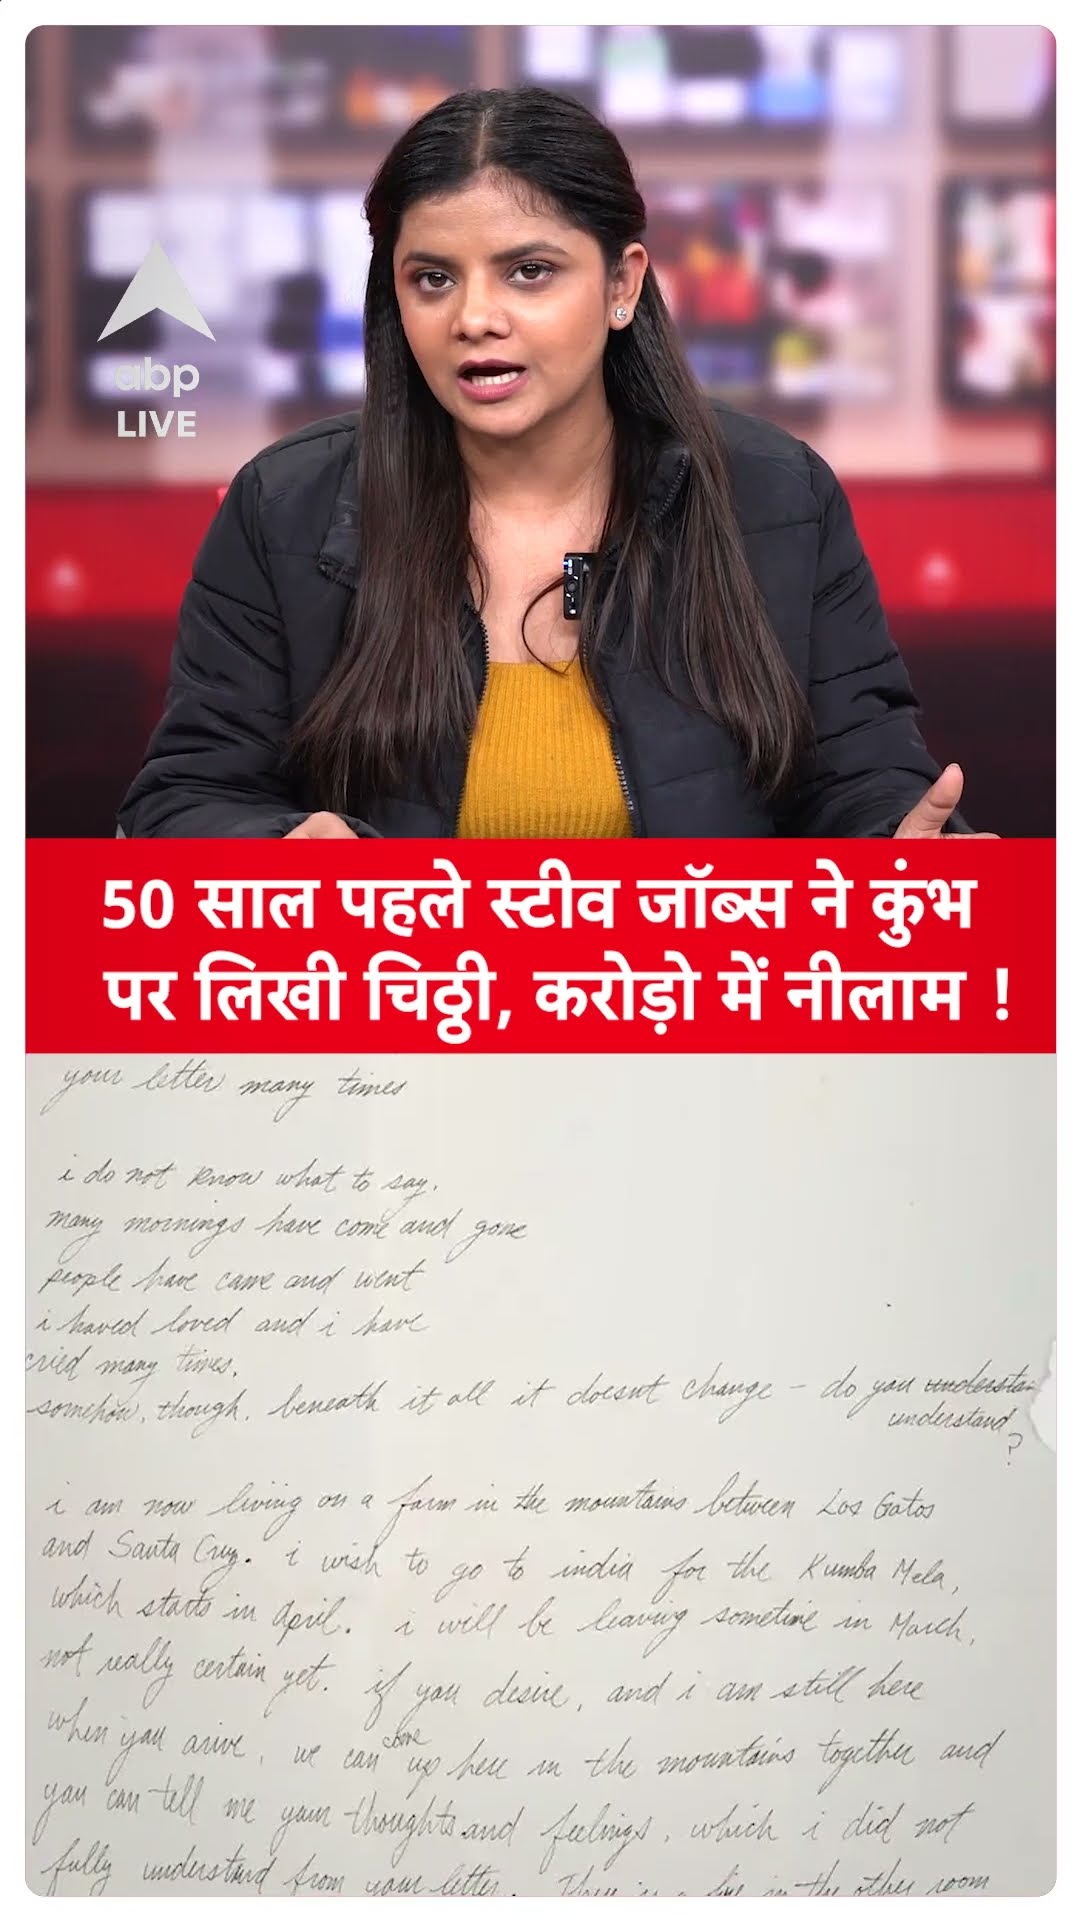 abp
LIVE
50 साल पहले स्टीव जॉब्स ने कुंभ
पर लिखी चिठ्ठी, करोड़ो में नीलाम !
your letter many times
i do not know what to say.
many mornings have come and gone
people have came and went
i haved loved and i have
cried many times.
somehow, though, beneath it all it doesnt change – do you understan
understand
?
i am now living on a farm in the mountains between Los Gatos
and Santa Cruz. i wish to go to india for the Kumba Mela,
which starts in April. i will be leaving sometime in March,
not really certain yet. if you desire, and i am still here
when you arive, we can come up here in the mountains together and
you can tell me your thoughts and feelings, which i did not
fully understand from your letter. There is a fire in the other room